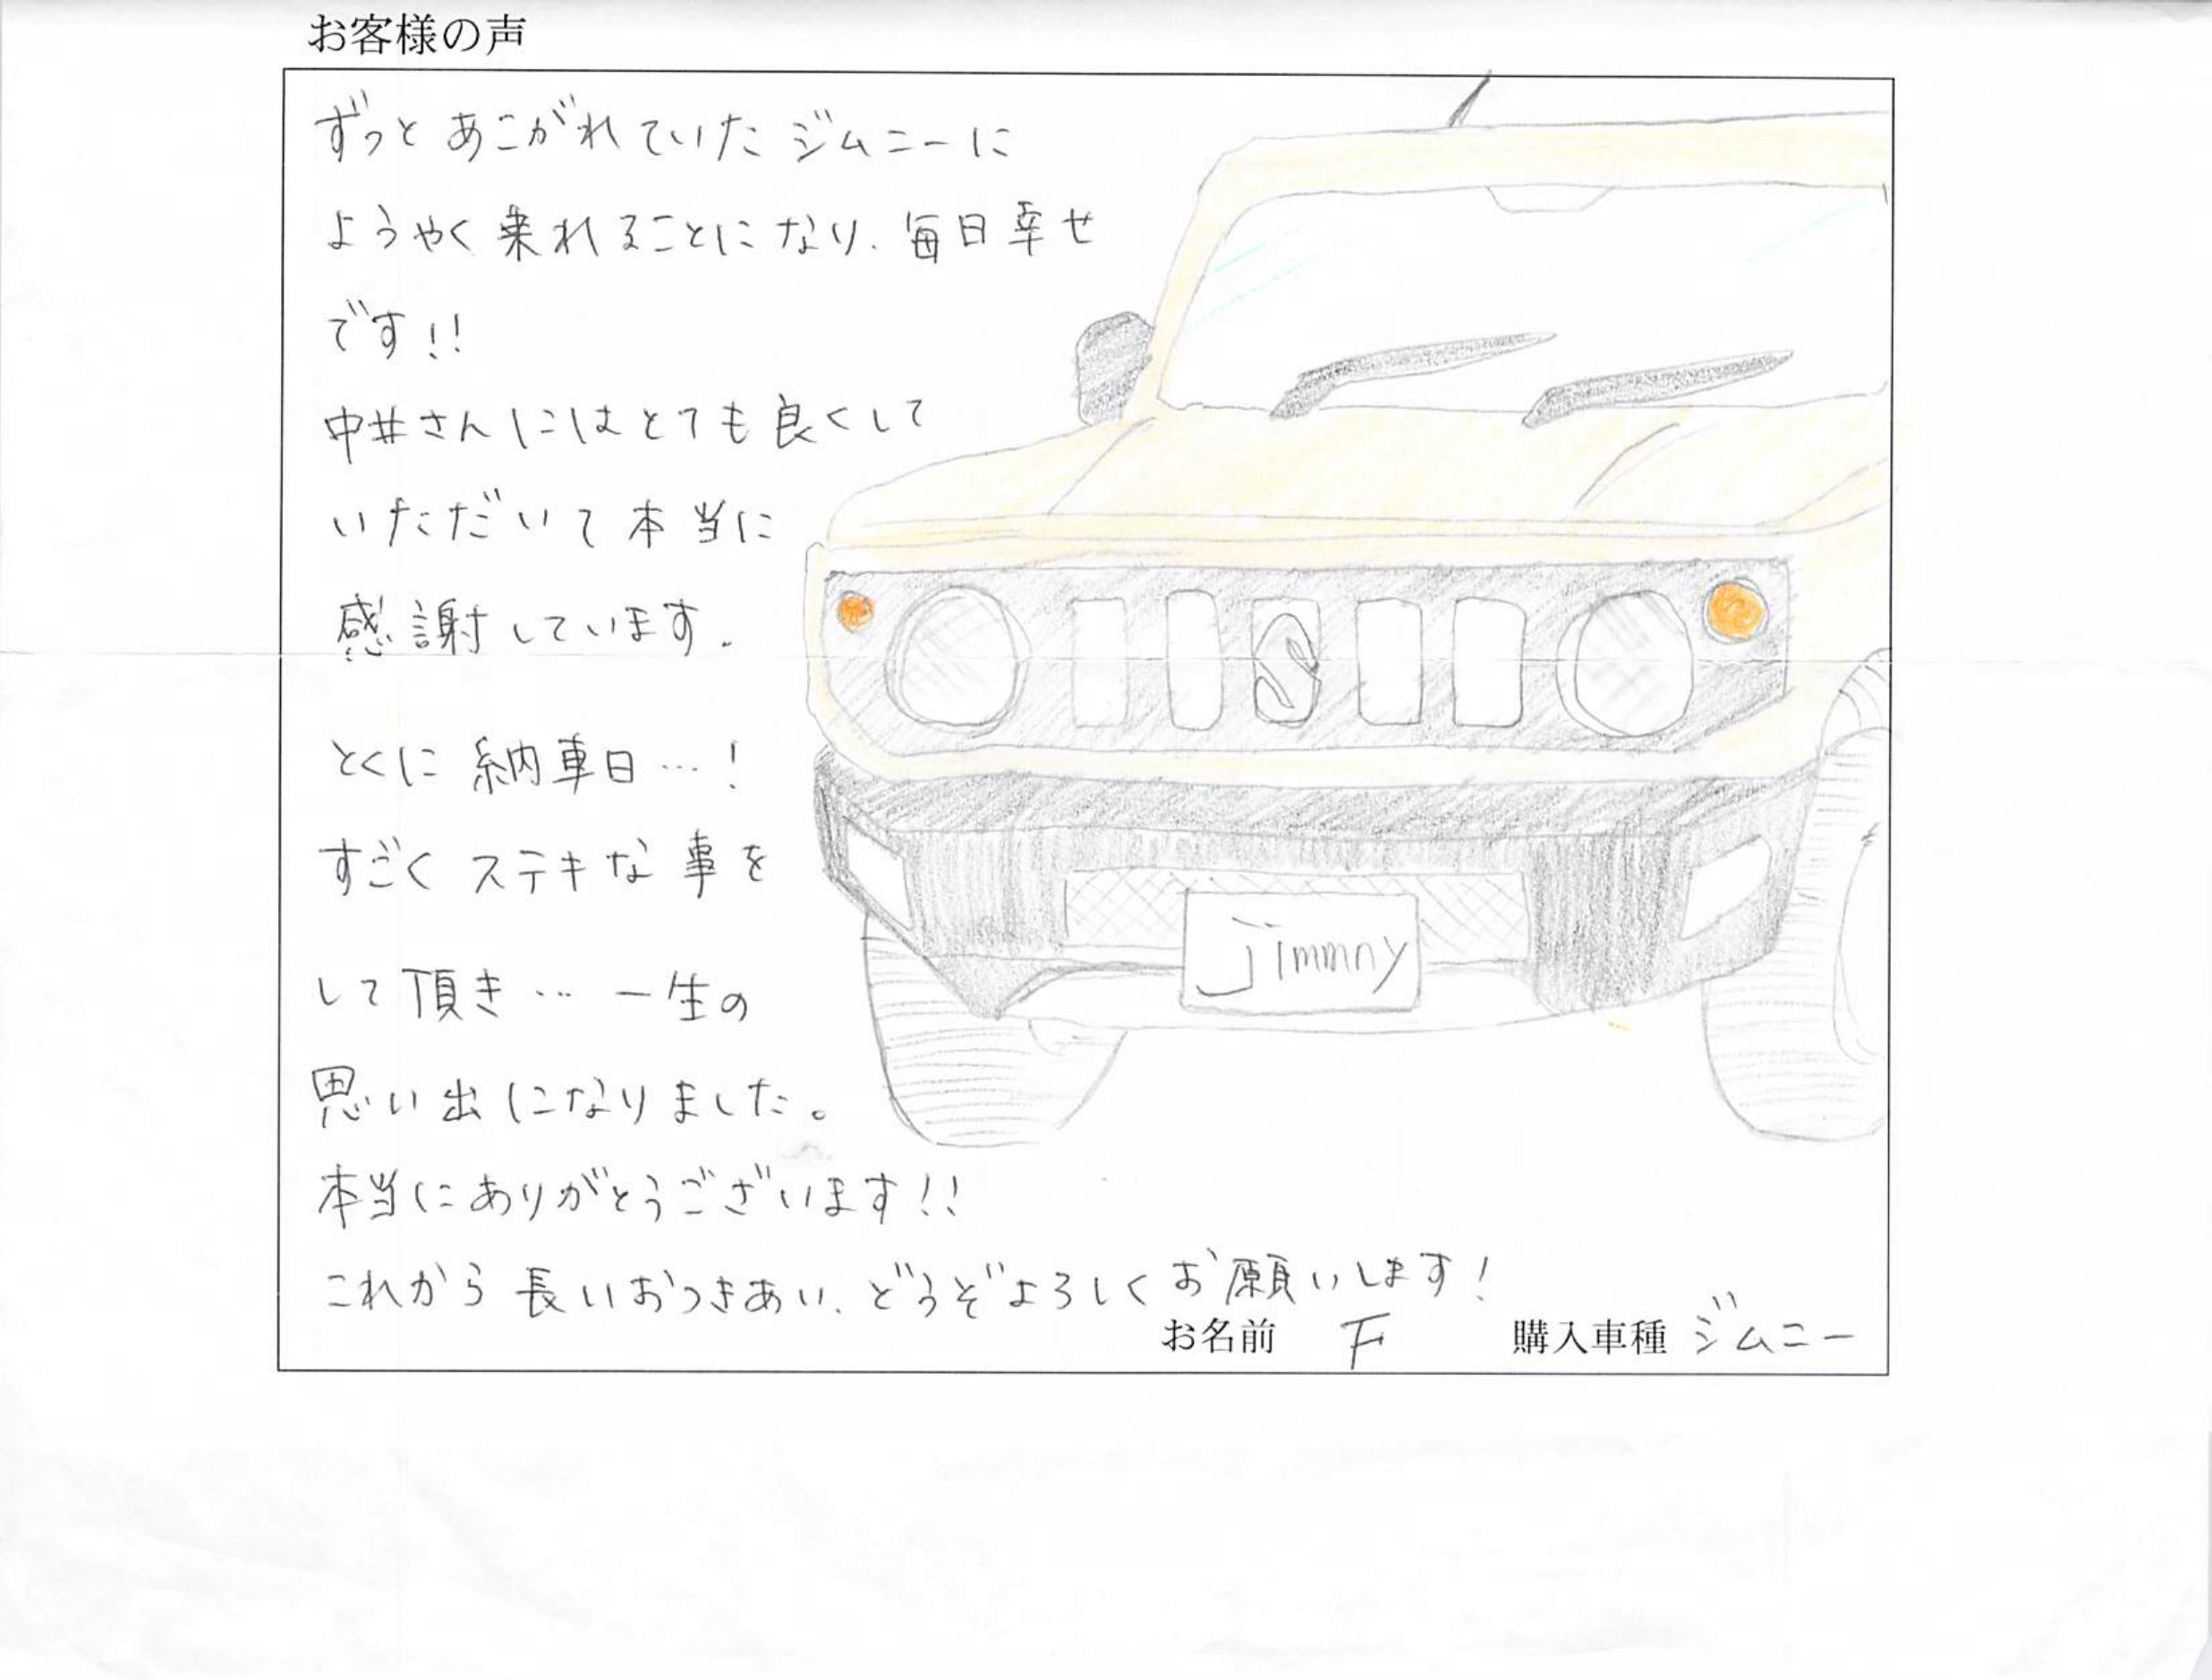 お客様の声
ずっとあこがれていたジムニーに
ようやく乗れることになり、毎日幸せ
です!!
中井さんにはとても良くして
いただいて本当に
感謝しています。
とくに納車日…!
すごくステキな事を
して頂き…一生の
思い出になりました。
本当にありがとうございます!!
これから長いおつきあい、どうぞよろしくお願いします!
S
jimmny
お名前 F 購入車種 ジムニー